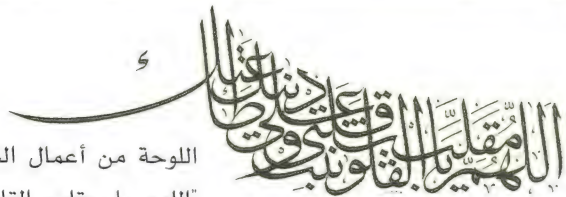 اللهم يا مقلب القلوب ثبت قلبي على دينك وطاعتك
اللوحة من أعمال
"اللهم يا مقلب